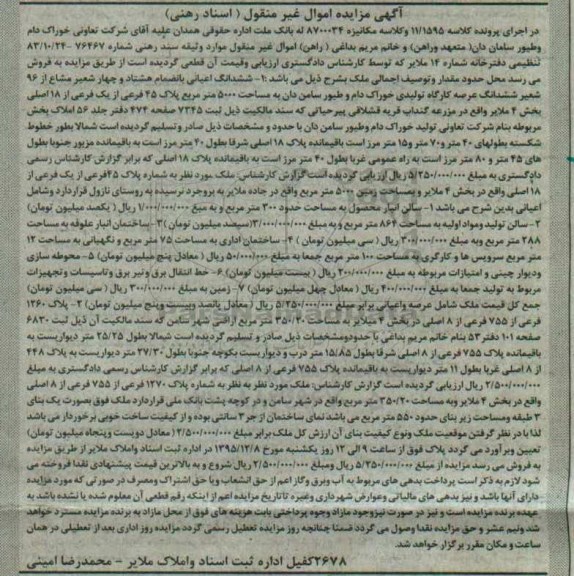 آگهی مزایده اموال غیر منقول ( اسناد رهنی)
در اجرای پرونده کلاسه ۱۱/۱۵۹۵ وکلاسه مکانیزه ۸۷۰۰۰۳۴ له بانک ملت اداره حقوقی همدان علیه آقای شرکت تعاونی خوراک دام
وطیور سامان دان( متعهد وراهن) و خانم مریم بداغی ( راهن) اموال غیر منقول موارد وثیقه سند رهنی شماره ۷۶۴۶۷ -۸۳/۱۰/۲۴
تنظیمی دفترخانه شماره ۱۴ ملایر که توسط کارشناس دادگستری ارزیابی وقیمت آن قطعی گردیده است از طریق مزایده به فروش
می رسد محل حدود مقدار وتوصیف اجمالی ملک بشرح ذیل می باشد :۱– ششدانگ اعیانی بانضمام هشتاد و چهار شعیر مشاع از ۹۶
شعیر ششدانگ عرصه کارگاه تولیدی خوراک دام و طیور سامن دان به مساحت ۵۰۰۰ متر مربع پلاک ۴۵ فرعی از یک فرعی از ۱۸ اصلی
بخش ۴ ملایر واقع در مزرعه گنداب قریه قشلاقی پیرحیاتی که سند مالکیت ذیل ثبت ۷۳۴۵ صفحه ۴۷۴ دفتر جلد ۵۶ املاک بخش
مربوطه بنام شرکت تعاونی تولید خوراک دام وطیور سامن دان با حدود و مشخصات ذیل صادر وتسلیم گردیده است شمالا بطور خطوط
شکسته بطولهای ۴۰ متر و۷۰ متر و۱۵ متر مرز است بباقیمانده پلاک ۱۸ اصلی شرقا بطول ۴۰ متر مرز است به باقیمانده مزبور جنوبا بطول
های ۴۵ متر و ۸۰ متر مرز است به راه عمومی غربا بطول ۴۰ متر مرز است به باقیمانده پلاک ۱۸ اصلی که برابر گزارش کارشناس رسمی
دادگستری به مبلغ ۵/۲۵۰/۰۰۰/۰۰۰ ریال ارزیابی گردیده است گزارش کارشناس: ملک مورد نظر به شماره پلاک ۴۵فرعی از یک فرعی از
۱۸ اصلی واقع در بخش ۴ ملایر و بمساحت زمین ۵۰۰۰ متر مربع واقع در جاده ملایر به بروجرد نرسیده به روستای نازول قراردارد وشامل
اعیانی بدین شرح می باشد ۱– سالن انبار محصول به مساحت حدود ۳۰۰ متر مربع و به مبلغ ۱/۰۰۰/۰۰۰/۰۰۰ ریال ( یکصد میلیون تومان)
۲– سالن تولید ومواد اولیه به مساحت ۸۶۴ متر مربع و به مبلغ ۳/۰۰۰/۰۰۰/۰۰۰( سیصد میلیون تومان )۳– ساختمان انبار علوفه به مساحت
۲۸۸ متر مربع وبه مبلغ ۳۰۰/۰۰۰/۰۰۰ ریال ( سی میلیون تومان ) ۴– ساختمان اداری به مساحت ۷۵ متر مربع و نگهبانی به مساحت ۱۲
متر مربع سرویس ها و کارگری به مساحت ۱۰۰ متر مربع جمعا به مبلغ ۵۰/۰۰۰/۰۰۰ ریال ( معادل پنج میلیون تومان) ۵– محوطه سازی
ودیوار چینی و امتیازات مربوطه به مبلغ ۲۰۰/۰۰۰/۰۰۰ ریال ( بیست میلیون تومان).۶– خط انتقال برق وتیر برق وتاسیسات و تجهیزات
مربوط به تولید جمعا به مبلغ ۴۰۰/۰۰۰/۰۰۰ ریال ( معادل چهل میلیون تومان) ۷– زمین به مبلغ ۳۰۰/۰۰۰/۰۰۰ ریال ( سی میلیون تومان)
جمع کل قیمت ملک شامل عرصه واعیانی برابر مبلغ ۵/۲۵۰/۰۰۰/۰۰۰ ریال ( معادل پانصد وبیست وپنج میلیون تومان) ۲– پلاک ۱۲۶۰
فرعی از ۷۵۵ فرعی از ۸ اصلی در بخش ۴ ملایر به مساحت ۳۵۰/۲۰ متر مربع اراضی شهر سامن که سند مالکیت آن ذیل ثبت ۶۸۳۰
صفحه ۱۰۱ دفتر ۵۳ بنام خانم مریم بداغی با حدودومشخصات ذیل صادر و تسلیم گردیده است شمالا بطول ۲۵/۲۵ متر دیواریست به
باقیمانده پلاک ۷۵۵ فرعی از ۸ اصلی شرقا بطول ۱۵/۸۵ متر درب و دیواریست بکوچه جنوبا بطول ۲۷/۳۰ متر دیواریست به پلاک ۴۴۸
از ۸ اصلی غربا بطول ۱۱ متر دیواریست به باقیمانده پلاک ۷۵۵ فرعی از ۸ اصلی که برابر گزارش کارشناس رسمی دادگستری به مبلغ
۲/۵۰۰/۰۰۰/۰۰۰ ریال ارزیابی گردیده است گزارش کارشناس: ملک مورد نظر به نظر به شماره پلاک ۱۲۷۰ فرعی از ۷۵۵ فرعی از ۸ اصلی
واقع در بخش ۴ ملایر وبه مساحت ۳۵۰/۲۰ متر مربع واقع در شهر سامن و در کوچه پشت بانک ملی قراردارد ملک فوق بصورت یک بنای
۳ طبقه ومساحت زیر بنای حدود ۵۵۰ متر مربع می باشد نمای ساختمان از جر ۳ سانتی بوده و از کیفیت ساخت خوبی برخوردار می باشد
لذا با در نظر گرفتن موقعیت ملک ونوع کیفیت بنای آن ارزش کل ملک برابر مبلغ ۲/۵۰۰/۰۰۰/۰۰۰ ( معادل دویست وپنجاه میلیون تومان)
تعیین وبرآورد می گردد پلاک فوق از ساعت ۹ الی ۱۲ روز یکشنبه مورخ ۱۳۹۵/۱۲/۸ در اداره ثبت اسناد واملاک ملایر از طریق مزایده
به فروش می رسد مزایده از مبلغ ۵/۲۵۰/۰۰۰/۰۰۰ ریال ومبلغ ۲/۵۰۰/۰۰۰/۰۰۰ ریال شروع و به بالاترین قیمت پیشنهادی نقدا فروخته می
شود لازم به ذکر است پرداخت بدهی های مربوط به آب وبرق وگاز اعم از حق انشعاب ویا حق اشتراک ومصرف در صورتی که مورد مزایده
دارای آنها باشد و نیز بدهی های مالیاتی وعوارض شهرداری وغیره تا تاریخ مزایده اعم از اینکه رقم قطعی آن معلوم شده یا نشده باشد به
عهده برنده مزایده است و نیز در صورت نیزوجود مازاد وجوه پرداختی بابت هزینه های فوق از محل مازاد به برنده مزایده مسترد خواهد
شد ونیم عشر و حق مزایده نقدا وصول می گردد ضمنا چنانچه روز مزایده تعطیل رسمی گردد مزایده روز اداری بعد از تعطیلی در همان
ساعت و مکان مقرر برگزار خواهد شد.
۲۶۷۸کفیل اداره ثبت اسناد واملاک ملایر – محمدرضا امینی